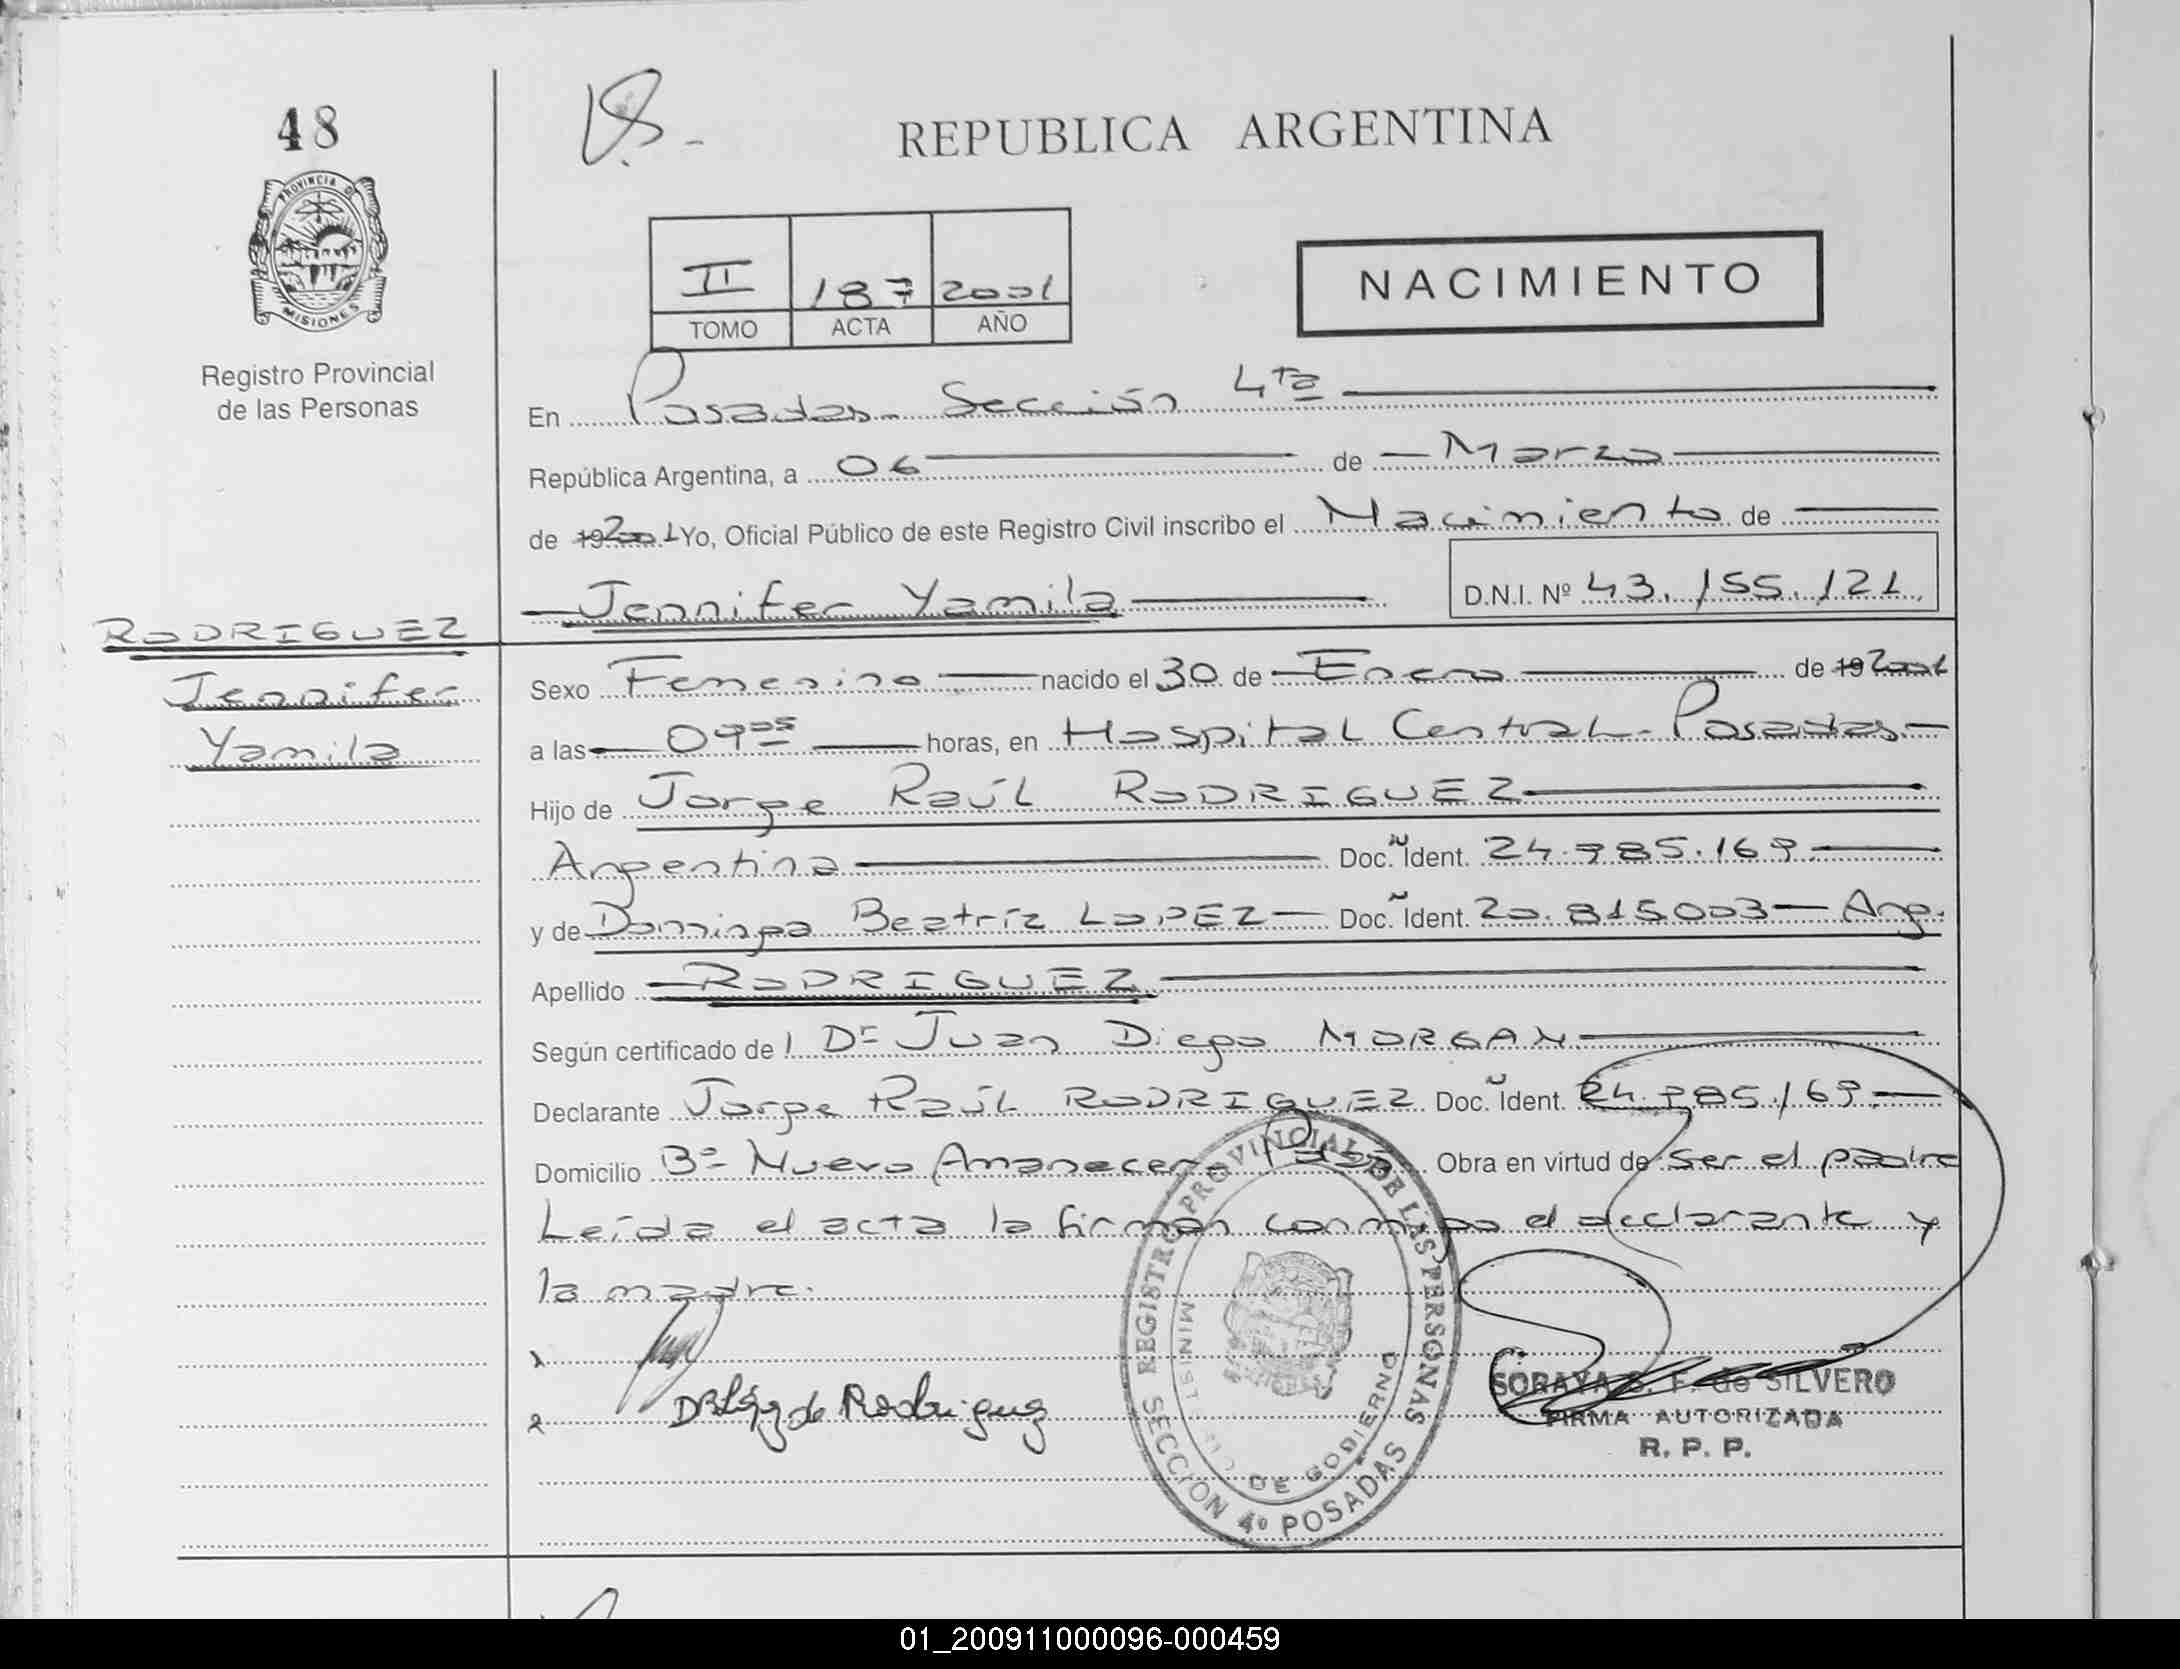 48
REPUBLICA ARGENTINA
PROVINCIA DE
MISIONES
Registro Provincial
de las Personas
II 187 2001
TOMO ACTA AÑO
NACIMIENTO
En Posadas - Sección 4ta
República Argentina, a 06 de Marzo
de 19 2001 Yo, Oficial Público de este Registro Civil inscribo el Nacimiento de
Jennifer Yamila D.N.I. Nº 43.155.121
RODRIGUEZ
Jennifer
Yamila
Sexo Femenino nacido el 30 de Enero de 19 2001
a las 09 05 horas, en Hospital Central - Posadas
Hijo de Jorge Raúl RODRIGUEZ
Argentina Doc. Ident. 24.985.169
y de Dominga Beatríz LOPEZ Doc. Ident. 20.815.003 - Arg.
Apellido RODRIGUEZ
Según certificado del Dr Juan Diego MORGAN
Declarante Jorge Raúl RODRIGUEZ Doc. Ident. 24.985.169
Domicilio Bº Nuevo Amanecer Obra en virtud de ser el padre
Leída el acta la firman conmigo el declarante y
la madre.
1
2 DBLópez de Rodriguez
REGISTRO PROVINCIAL DE LAS PERSONAS
MINISTERIO DE GOBIERNO
SECCION 4º POSADAS
SORAYA S. F. de SILVERO
FIRMA AUTORIZADA
R. P. P.
01_200911000096-000459